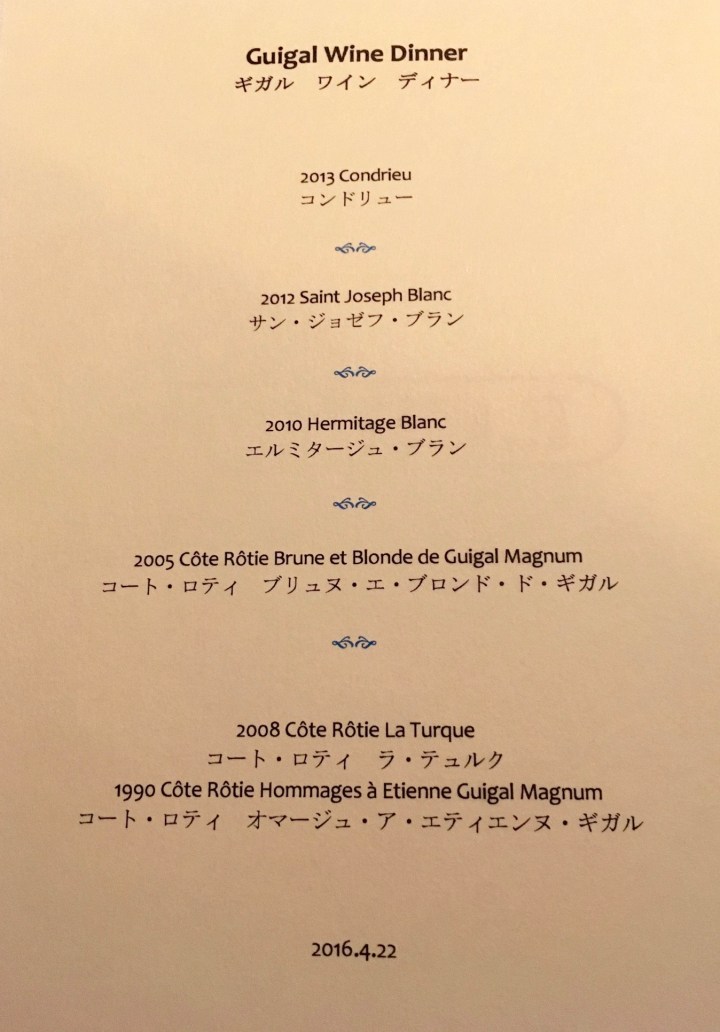 Guigal Wine Dinner
ギガル　ワイン　ディナー
2013 Condrieu
コンドリュー
2012 Saint Joseph Blanc
サン・ジョゼフ・ブラン
2010 Hermitage Blanc
エルミタージュ・ブラン
2005 Côte Rôtie Brune et Blonde de Guigal Magnum
コート・ロティ　ブリュヌ・エ・ブロンド・ド・ギガル
2008 Côte Rôtie La Turque
コート・ロティ　ラ・テュルク
1990 Côte Rôtie Hommages à Etienne Guigal Magnum
コート・ロティ　オマージュ・ア・エティエンヌ・ギガル
2016.4.22